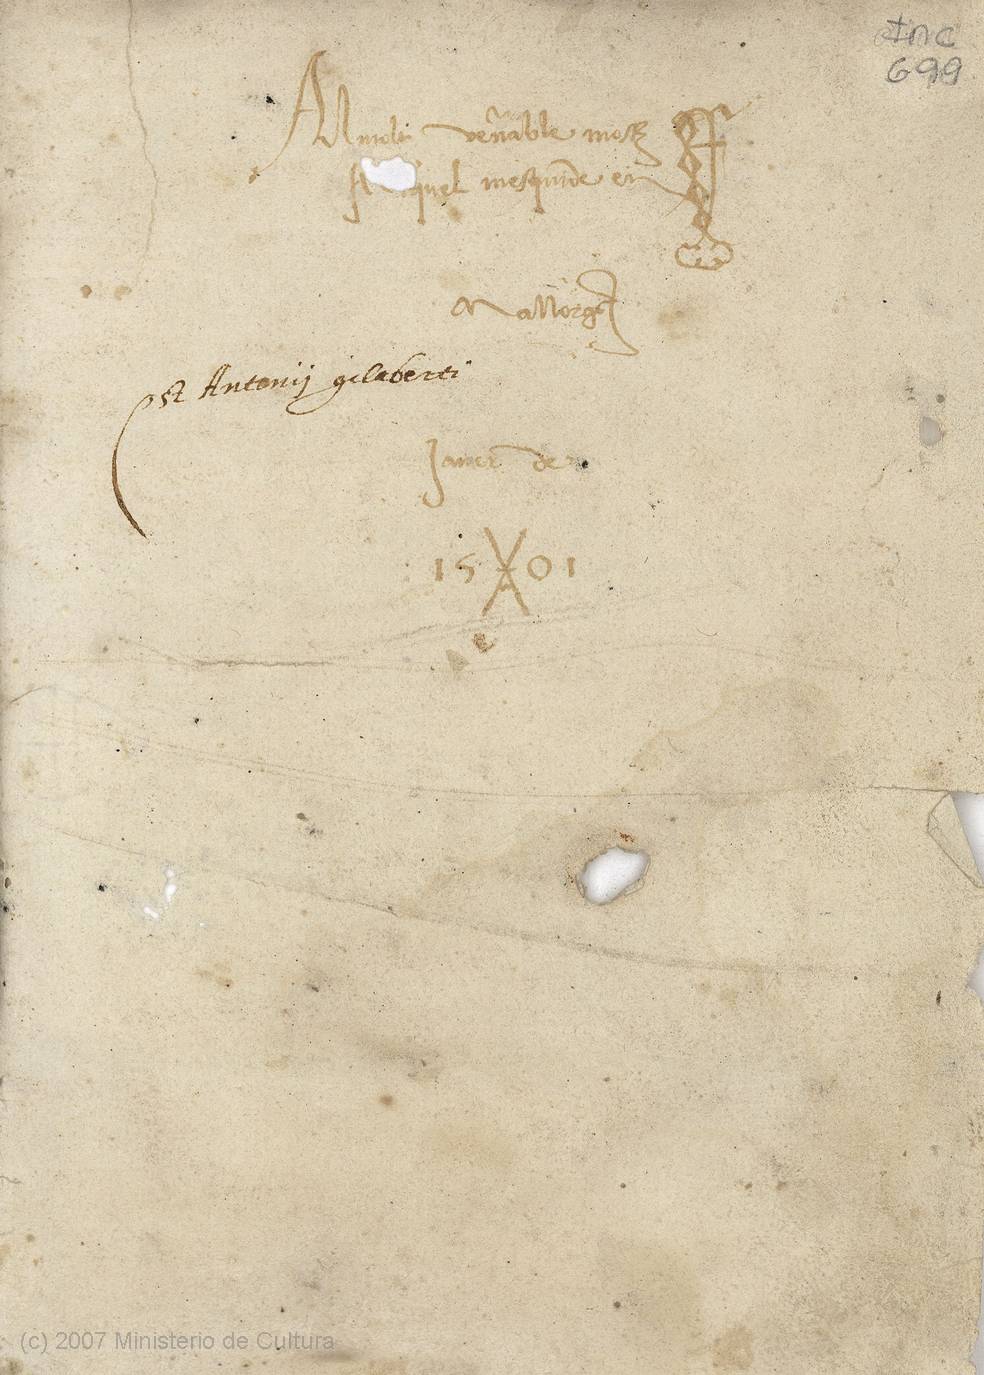 Inc
699
Al molt venable moss
Miquel mesquide en
Mallorq
Est Antonij gilaberti
Janer de
15 01
(c) 2007 Ministerio de Cultura